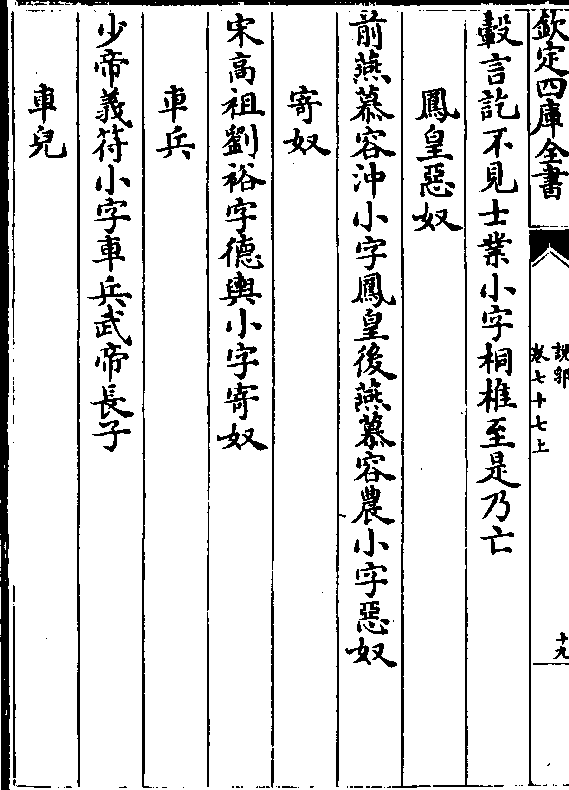 欽定四庫全書
說郛
卷七十七上
十九
轂言訖不見士業小字桐椎至是乃亡
鳳皇惡奴
前燕慕容沖小字鳳皇後燕慕容農小字惡奴
寄奴
宋高祖劉裕字德輿小字寄奴
車兵
少帝義符小字車兵武帝長子
車兒